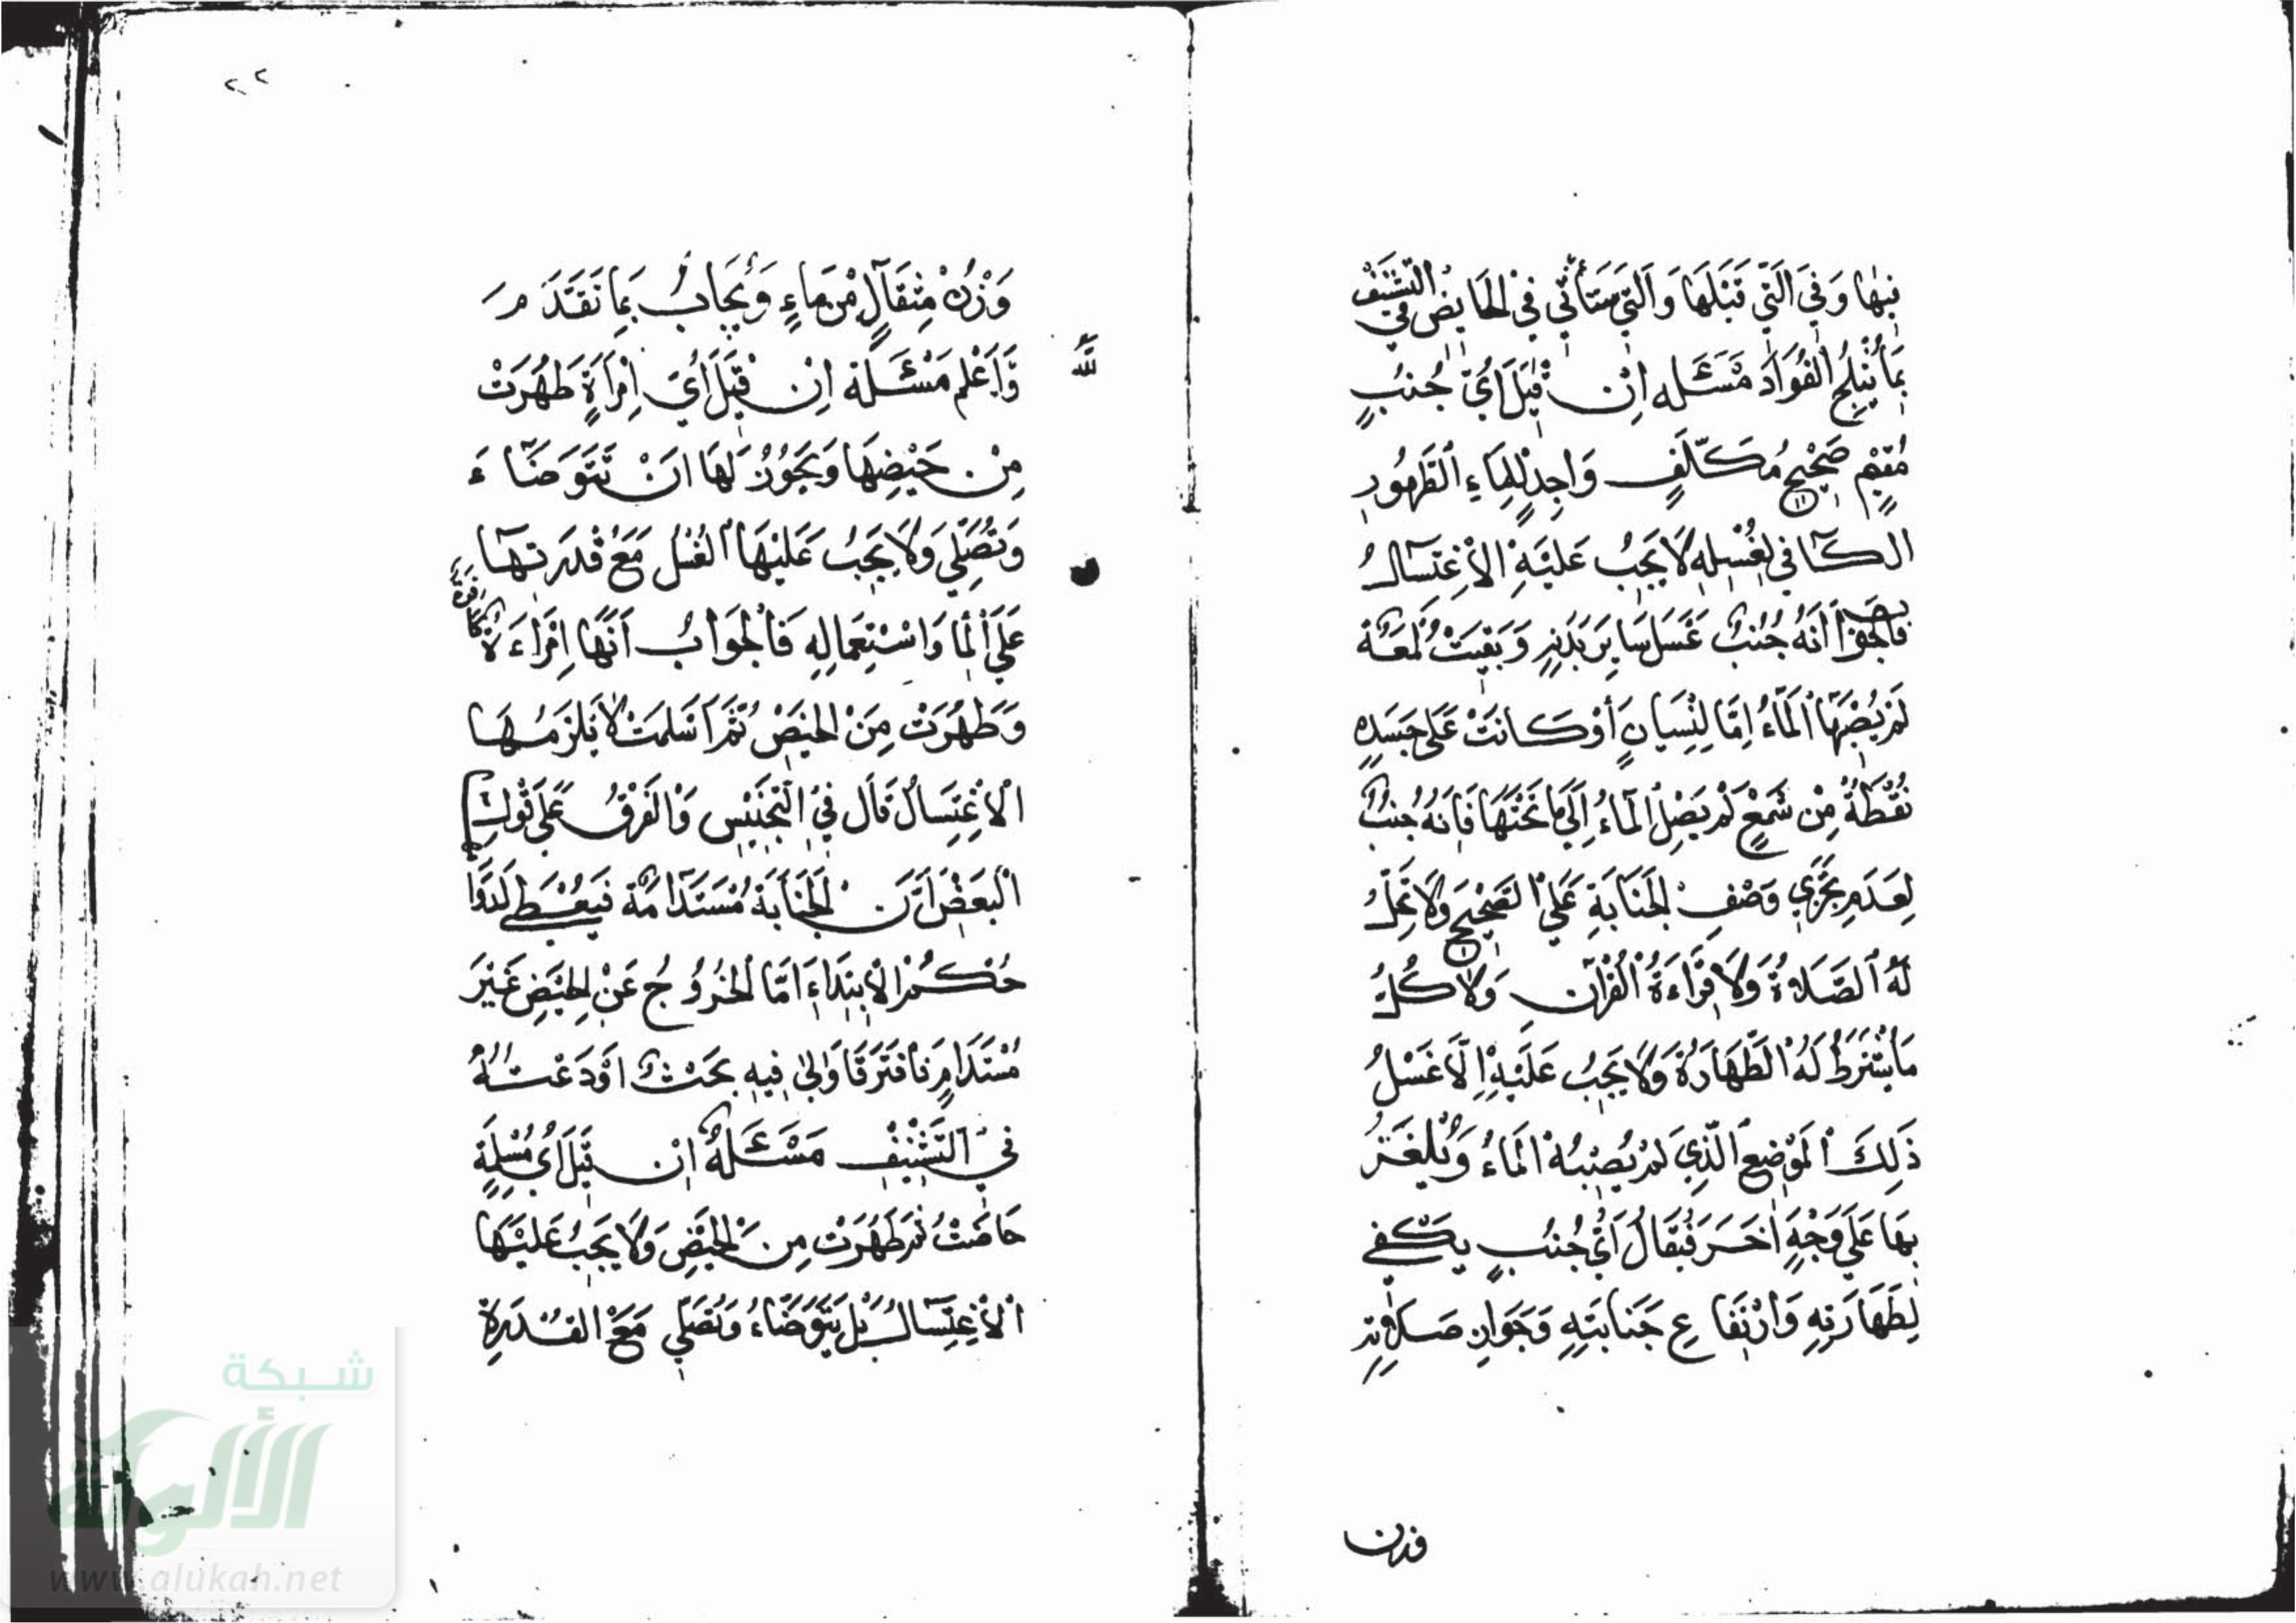 فيها وَفِي الَّتِي قَبْلَهَا وَالَّتِي سَتَأْتِي فِي الْحَايِضِ فِي التَّشْنِيفِ
بِمَا يُثْلِجُ الْفُوَادَ مَسْئَله اِنْ قِيلَ اَيُّ جُنبٍ
مُقِيمٍ صَحِيْحٍ مُكَلَّفٍ وَاجِدٍ لِلْمَاءِ الطَّهُورِ
الكَافي لِغُسْلِهِ لَا يَجِبُ عَلَيْهِ الاِغْتِسَالُ
فالجوا اَنَّهُ جُنُبٌ غَسَلَ سَايِرَ بَدَنِهِ وَبَقِيَتْ لُمْعَةٌ
لَمْ يُصِبْهَا الْمَاءُ اِمَّا لِنِسْيَانٍ أَوْ كَانَتْ عَلَى جَسَدِهِ
نُقْطَةٌ مِنْ شَمْعٍ لَمْ يَصِلِ الْمَاءُ اِلَى مَا تَحْتَهَا فَاِنَّهُ جُنُبٌ
لِعَدَمِ تَجَزِّي وَصْفِ الْجَنَابَةِ عَلَى الصَّحِيْحِ وَلَا تَحِلُّ
لَهُ الصَّلَاةُ وَلَا قِرَاءَةُ الْقُرْآنِ وَلَا كُلُّ
مَا يُشْتَرَطُ لَهُ الطَّهَارَةُ وَلَا يَجِبُ عَلَيْهِ اِلَّا غَسْلُ
ذَلِكَ الْمَوْضِعِ الَّذِي لَمْ يُصِبْهُ الْمَاءُ وَيُلْغَزُ
بِهَا عَلَى وَجْهٍ اٰخَرَ فَيُقَالُ اَيُّ جُنُبٍ يَكْفِي
لِطَهَارَتِهِ وَارْتِفَاعِ جَنَابَتِهِ وَجَوَازِ صَلَاتِهِ
وزن
٢٢
وَزْنُ مِثْقَالٍ مِنْ مَاءٍ وَيُجَابُ بِمَا تَقَدَّمَ
وَاَعْلم مَسْئَلَة اِنْ قِيْلَ اَيُّ اِمْرَاَةٍ طَهُرَتْ
مِنْ حَيْضِهَا وَيَجُوْزُ لَهَا اَنْ تَتَوَضَّاءَ
وَتُصَلِّيَ وَلَا يَجِبُ عَلَيْهَا الْغُسْلُ مَعَ قُدْرَتِهَا
عَلَى الْمَا وَاسْتِعْمَالِهِ فَالْجَوَابُ اَنَّهَا اِمْرَاءَةٌ كافرة
وَطَهُرَتْ مِنَ الْحَيْضِ ثُمَّ اَسْلَمَتْ لَا يَلْزَمُهَا
الْاِغْتِسَالُ قَالَ فِي التَّجْنِيْسِ وَالْفَرْقُ عَلَى قَوْلِ
الْبَعْضِ اَنَّ الْجَنَابَةَ مُسْتَدَامَة فَيُعْطَى لَدَوَا
حُكْمُ الاِبْتِدَاءِ اَمَّا الْخُرُوْجُ عَنْ الْحَيْضِ غَيْرَ
مُسْتَدَامٍ فَافْتَرَقَا وَلِي فِيهِ بَحْثٌ اَوْدَعْتُهُ
فِي التَّشْنِيْفِ مَسْئَلَةٌ اِنْ قِيلَ اَيُّ مُسْلِمَةٍ
حَاضَتْ ثُمَّ طَهُرَتْ مِنَ الْحَيْضِ وَلَا يَجِبُ عَلَيْهَا
الْاِغْتِسَالُ بَلْ تَتَوَضَّاءُ وَتُصَلِّي مَعَ الْقُدْرَةِ
لله
شبكة
الألوكة
www.alukah.net